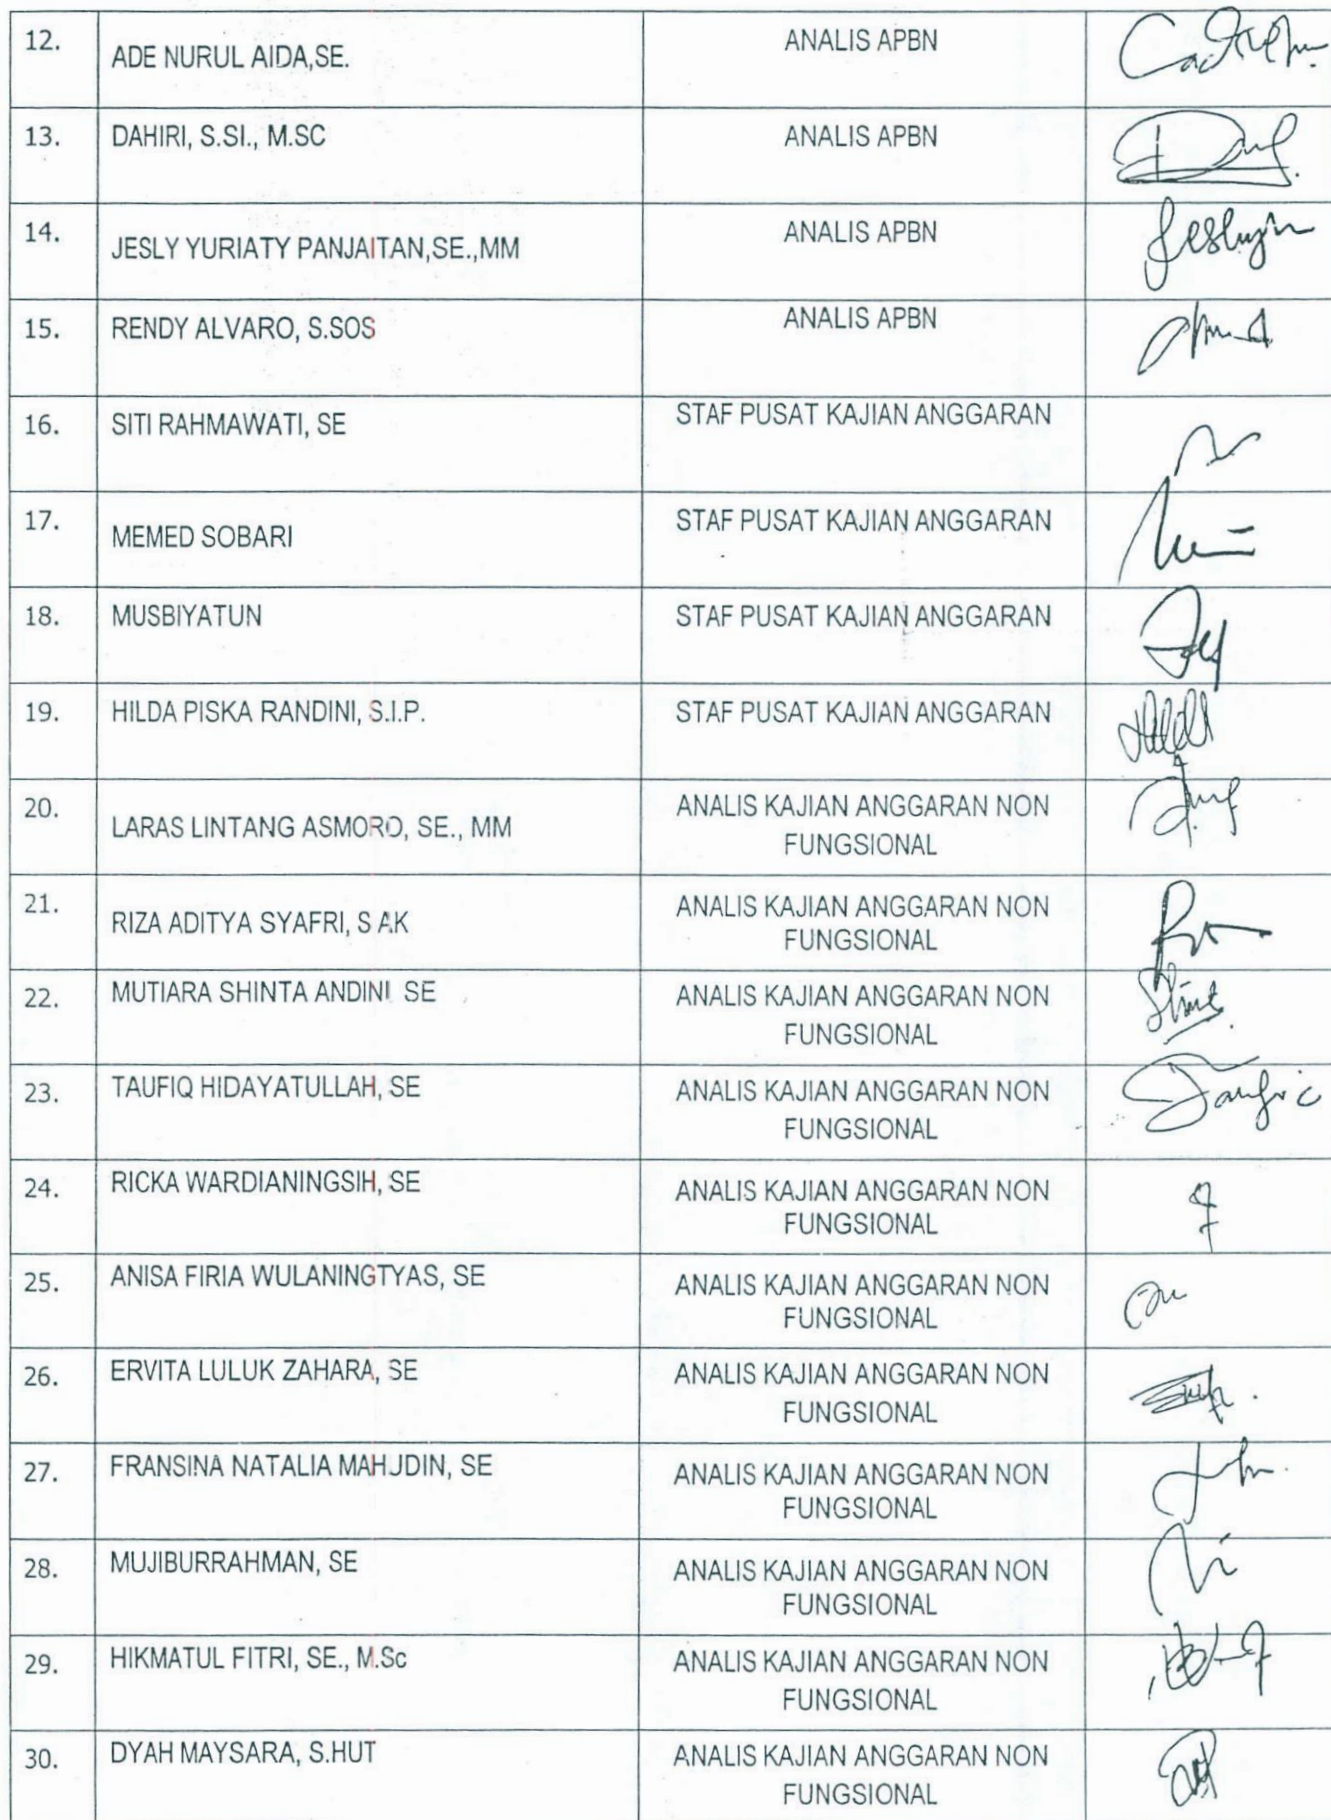 12. ADE NURUL AIDA,SE. ANALIS APBN
13. DAHIRI, S.SI., M.SC ANALIS APBN
14. JESLY YURIATY PANJAITAN,SE.,MM ANALIS APBN
15. RENDY ALVARO, S.SOS ANALIS APBN
16. SITI RAHMAWATI, SE STAF PUSAT KAJIAN ANGGARAN
17. MEMED SOBARI STAF PUSAT KAJIAN ANGGARAN
18. MUSBIYATUN STAF PUSAT KAJIAN ANGGARAN
19. HILDA PISKA RANDINI, S.I.P. STAF PUSAT KAJIAN ANGGARAN
20. LARAS LINTANG ASMORO, SE., MM ANALIS KAJIAN ANGGARAN NON
FUNGSIONAL
21. RIZA ADITYA SYAFRI, S AK ANALIS KAJIAN ANGGARAN NON
FUNGSIONAL
22. MUTIARA SHINTA ANDINI SE ANALIS KAJIAN ANGGARAN NON
FUNGSIONAL
23. TAUFIQ HIDAYATULLAH, SE ANALIS KAJIAN ANGGARAN NON
FUNGSIONAL
24. RICKA WARDIANINGSIH, SE ANALIS KAJIAN ANGGARAN NON
FUNGSIONAL
25. ANISA FIRIA WULANINGTYAS, SE ANALIS KAJIAN ANGGARAN NON
FUNGSIONAL
26. ERVITA LULUK ZAHARA, SE ANALIS KAJIAN ANGGARAN NON
FUNGSIONAL
27. FRANSINA NATALIA MAHJDIN, SE ANALIS KAJIAN ANGGARAN NON
FUNGSIONAL
28. MUJIBURRAHMAN, SE ANALIS KAJIAN ANGGARAN NON
FUNGSIONAL
29. HIKMATUL FITRI, SE., M.Sc ANALIS KAJIAN ANGGARAN NON
FUNGSIONAL
30. DYAH MAYSARA, S.HUT ANALIS KAJIAN ANGGARAN NON
FUNGSIONAL